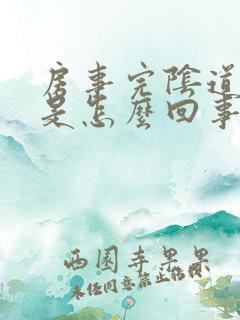 房事完陰道
是怎麼回事
西園寺果果
未经同意禁止转载